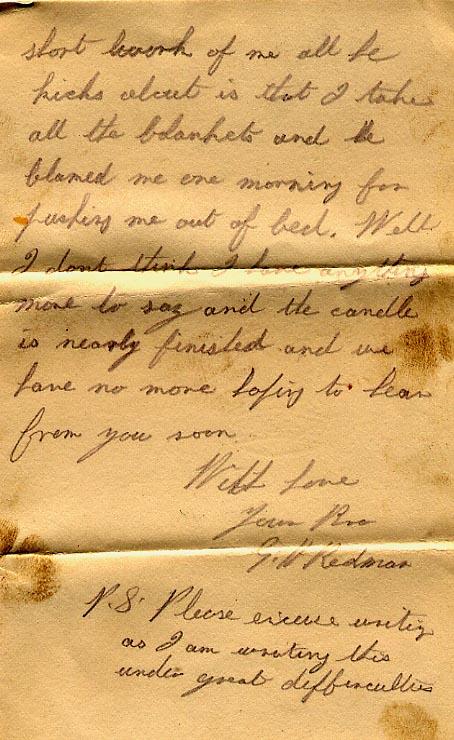 short work of me all he
kicks about is that I take
all the blankets and he
blamed me one morning for
pushing me out of bed. Well
I dont think I have anything
more to say and the candle
is nearly finished and we
have no more hoping to hear
from you soon
With Love
Your Bro
G. H Redman
P.S. Please excuse writing
as I am writing this
under great differculties